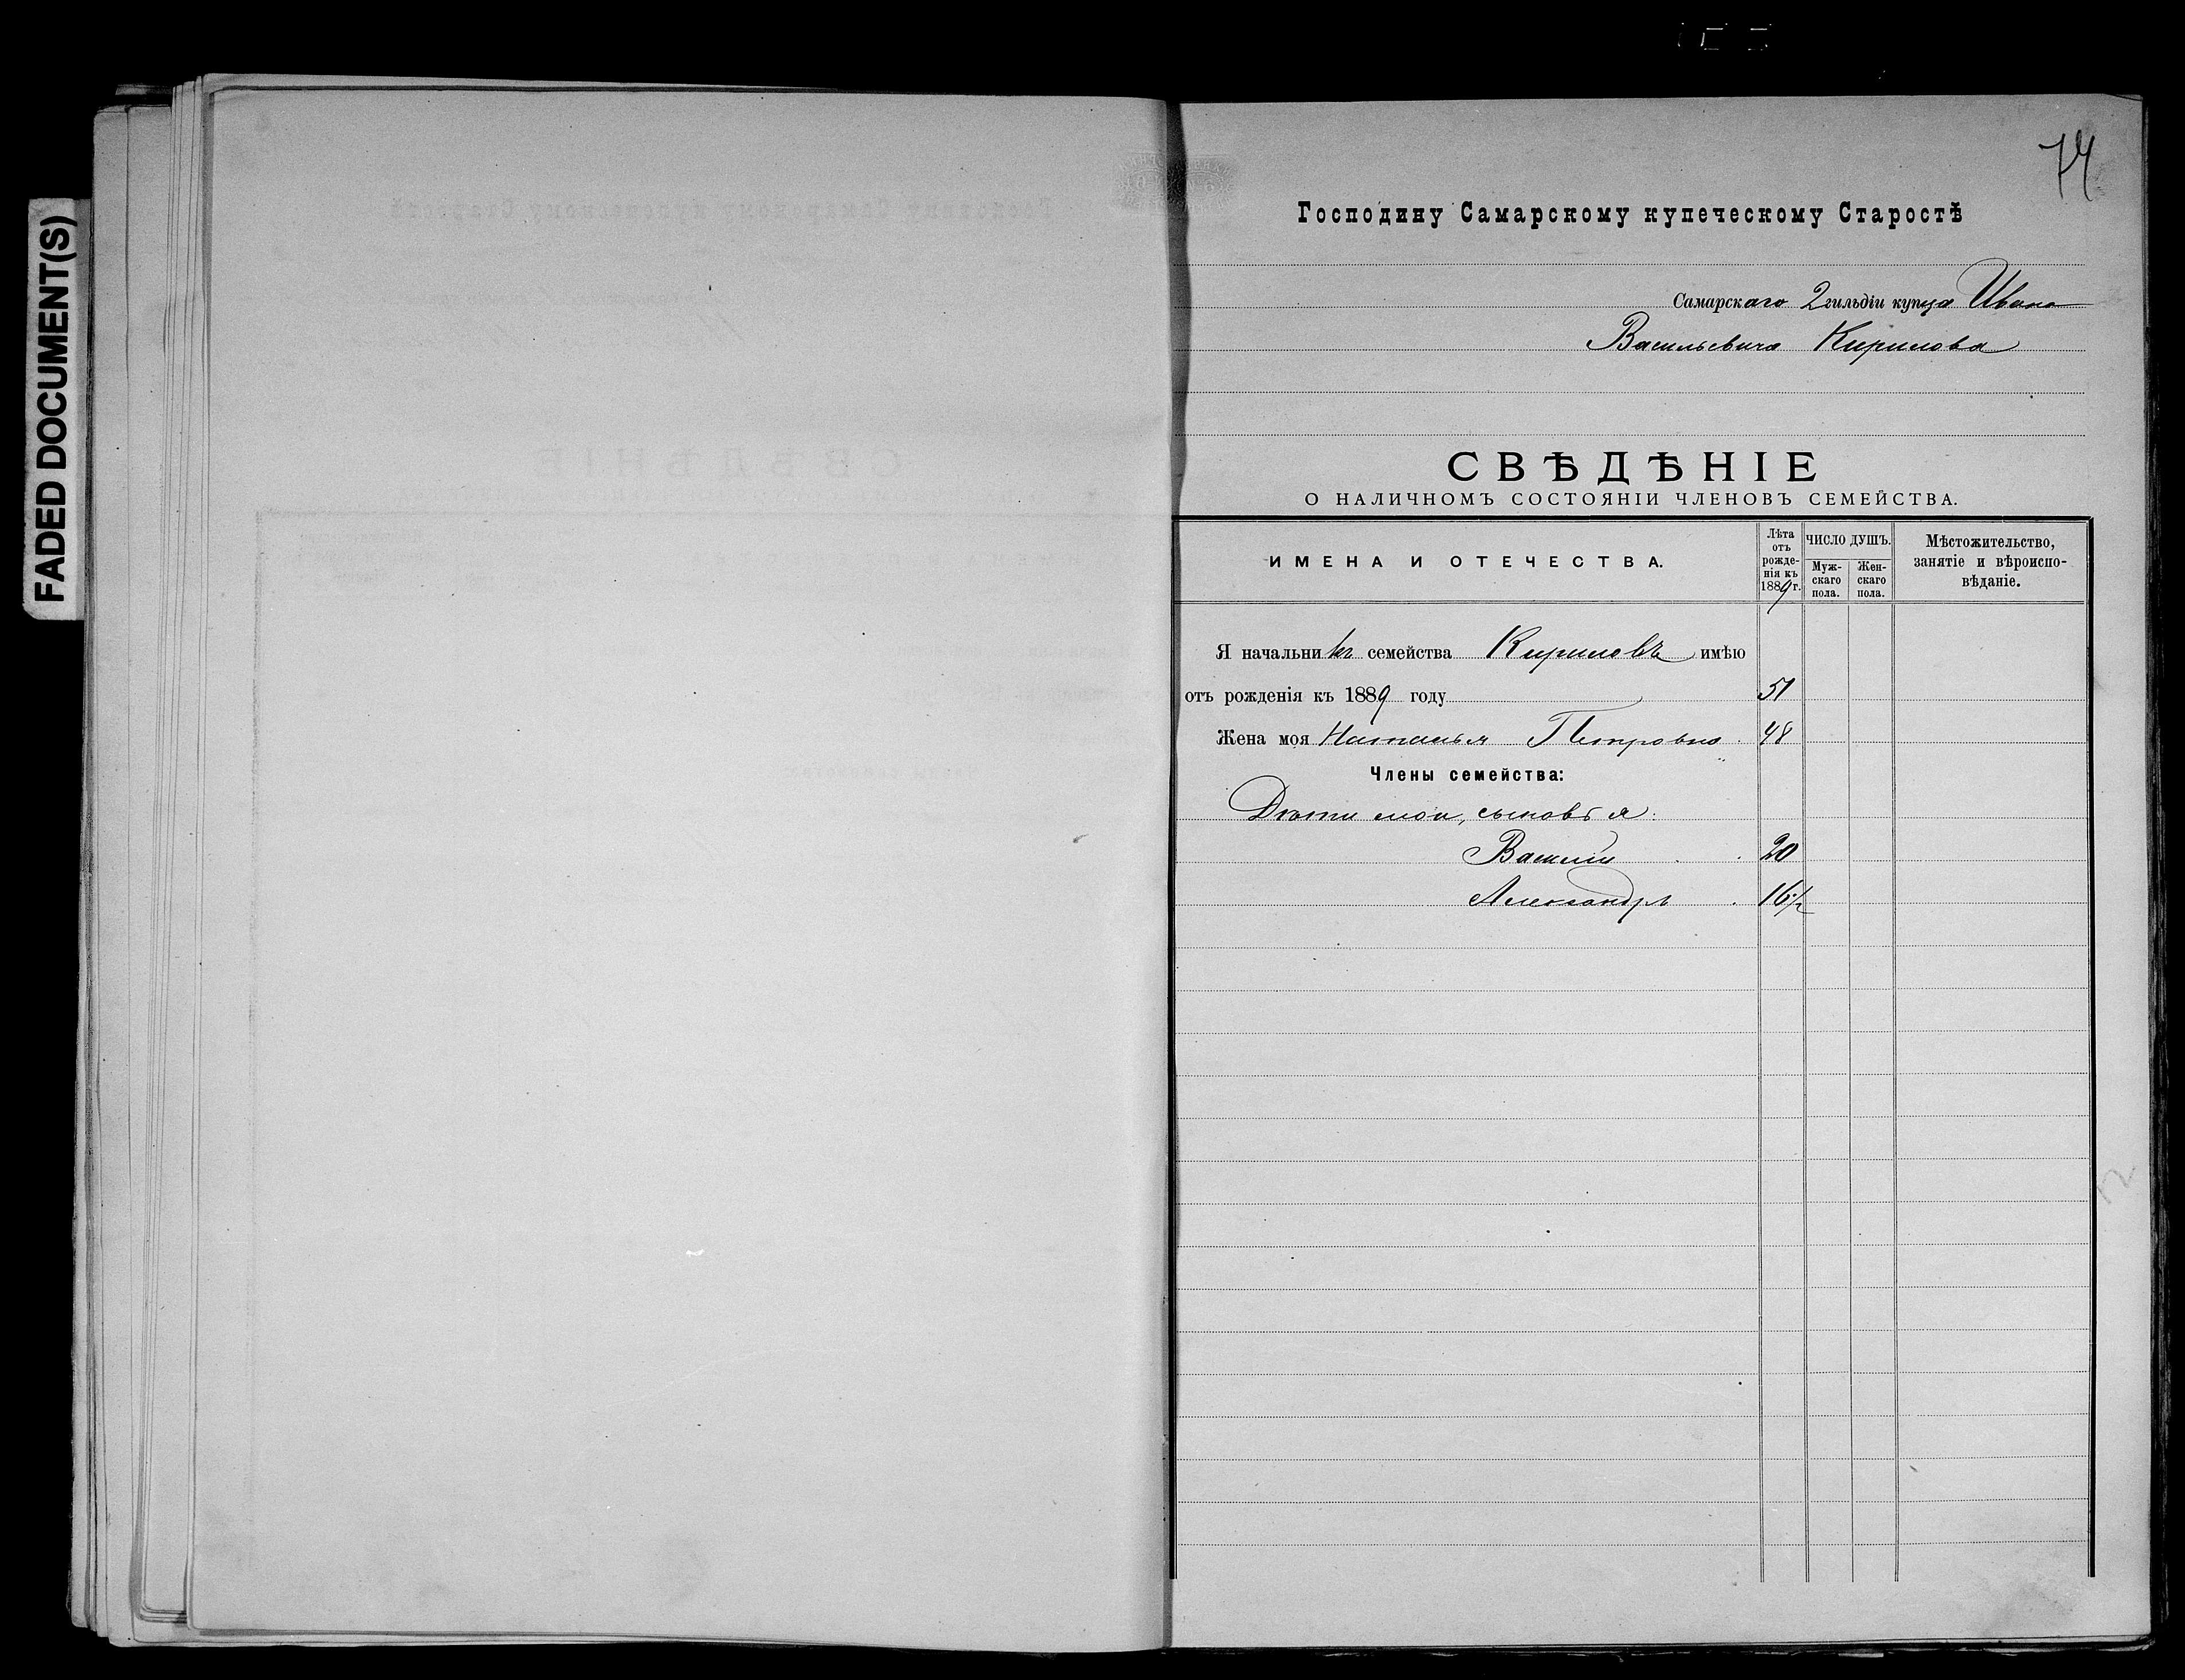 FADED DOCUMENT(S)
74
Господину Самарскому купеческому Старостѣ
Самарскаго 2 гильдіи купца Ивана
Васильевича Кирилова
СВѢДѢНІЕ
О НАЛИЧНОМЪ СОСТОЯНІИ ЧЛЕНОВЪ СЕМЕЙСТВА.
ИМЕНА И ОТЕЧЕСТВА.
Лѣта
отъ
рожде-
нія къ
1889 г.
ЧИСЛО ДУШЪ.
Муж-
скаго
пола.
Жен-
скаго
пола.
Мѣстожительство,
занятіе и вѣроиспо-
вѣданіе.
Я начальникъ семейства Кириловъ имѣю
отъ рожденія къ 1889 году 51
Жена моя Наталья Петровна 48
Члены семейства:
Дѣти мои, сыновья:
Василій 20
Александръ 16 1/2